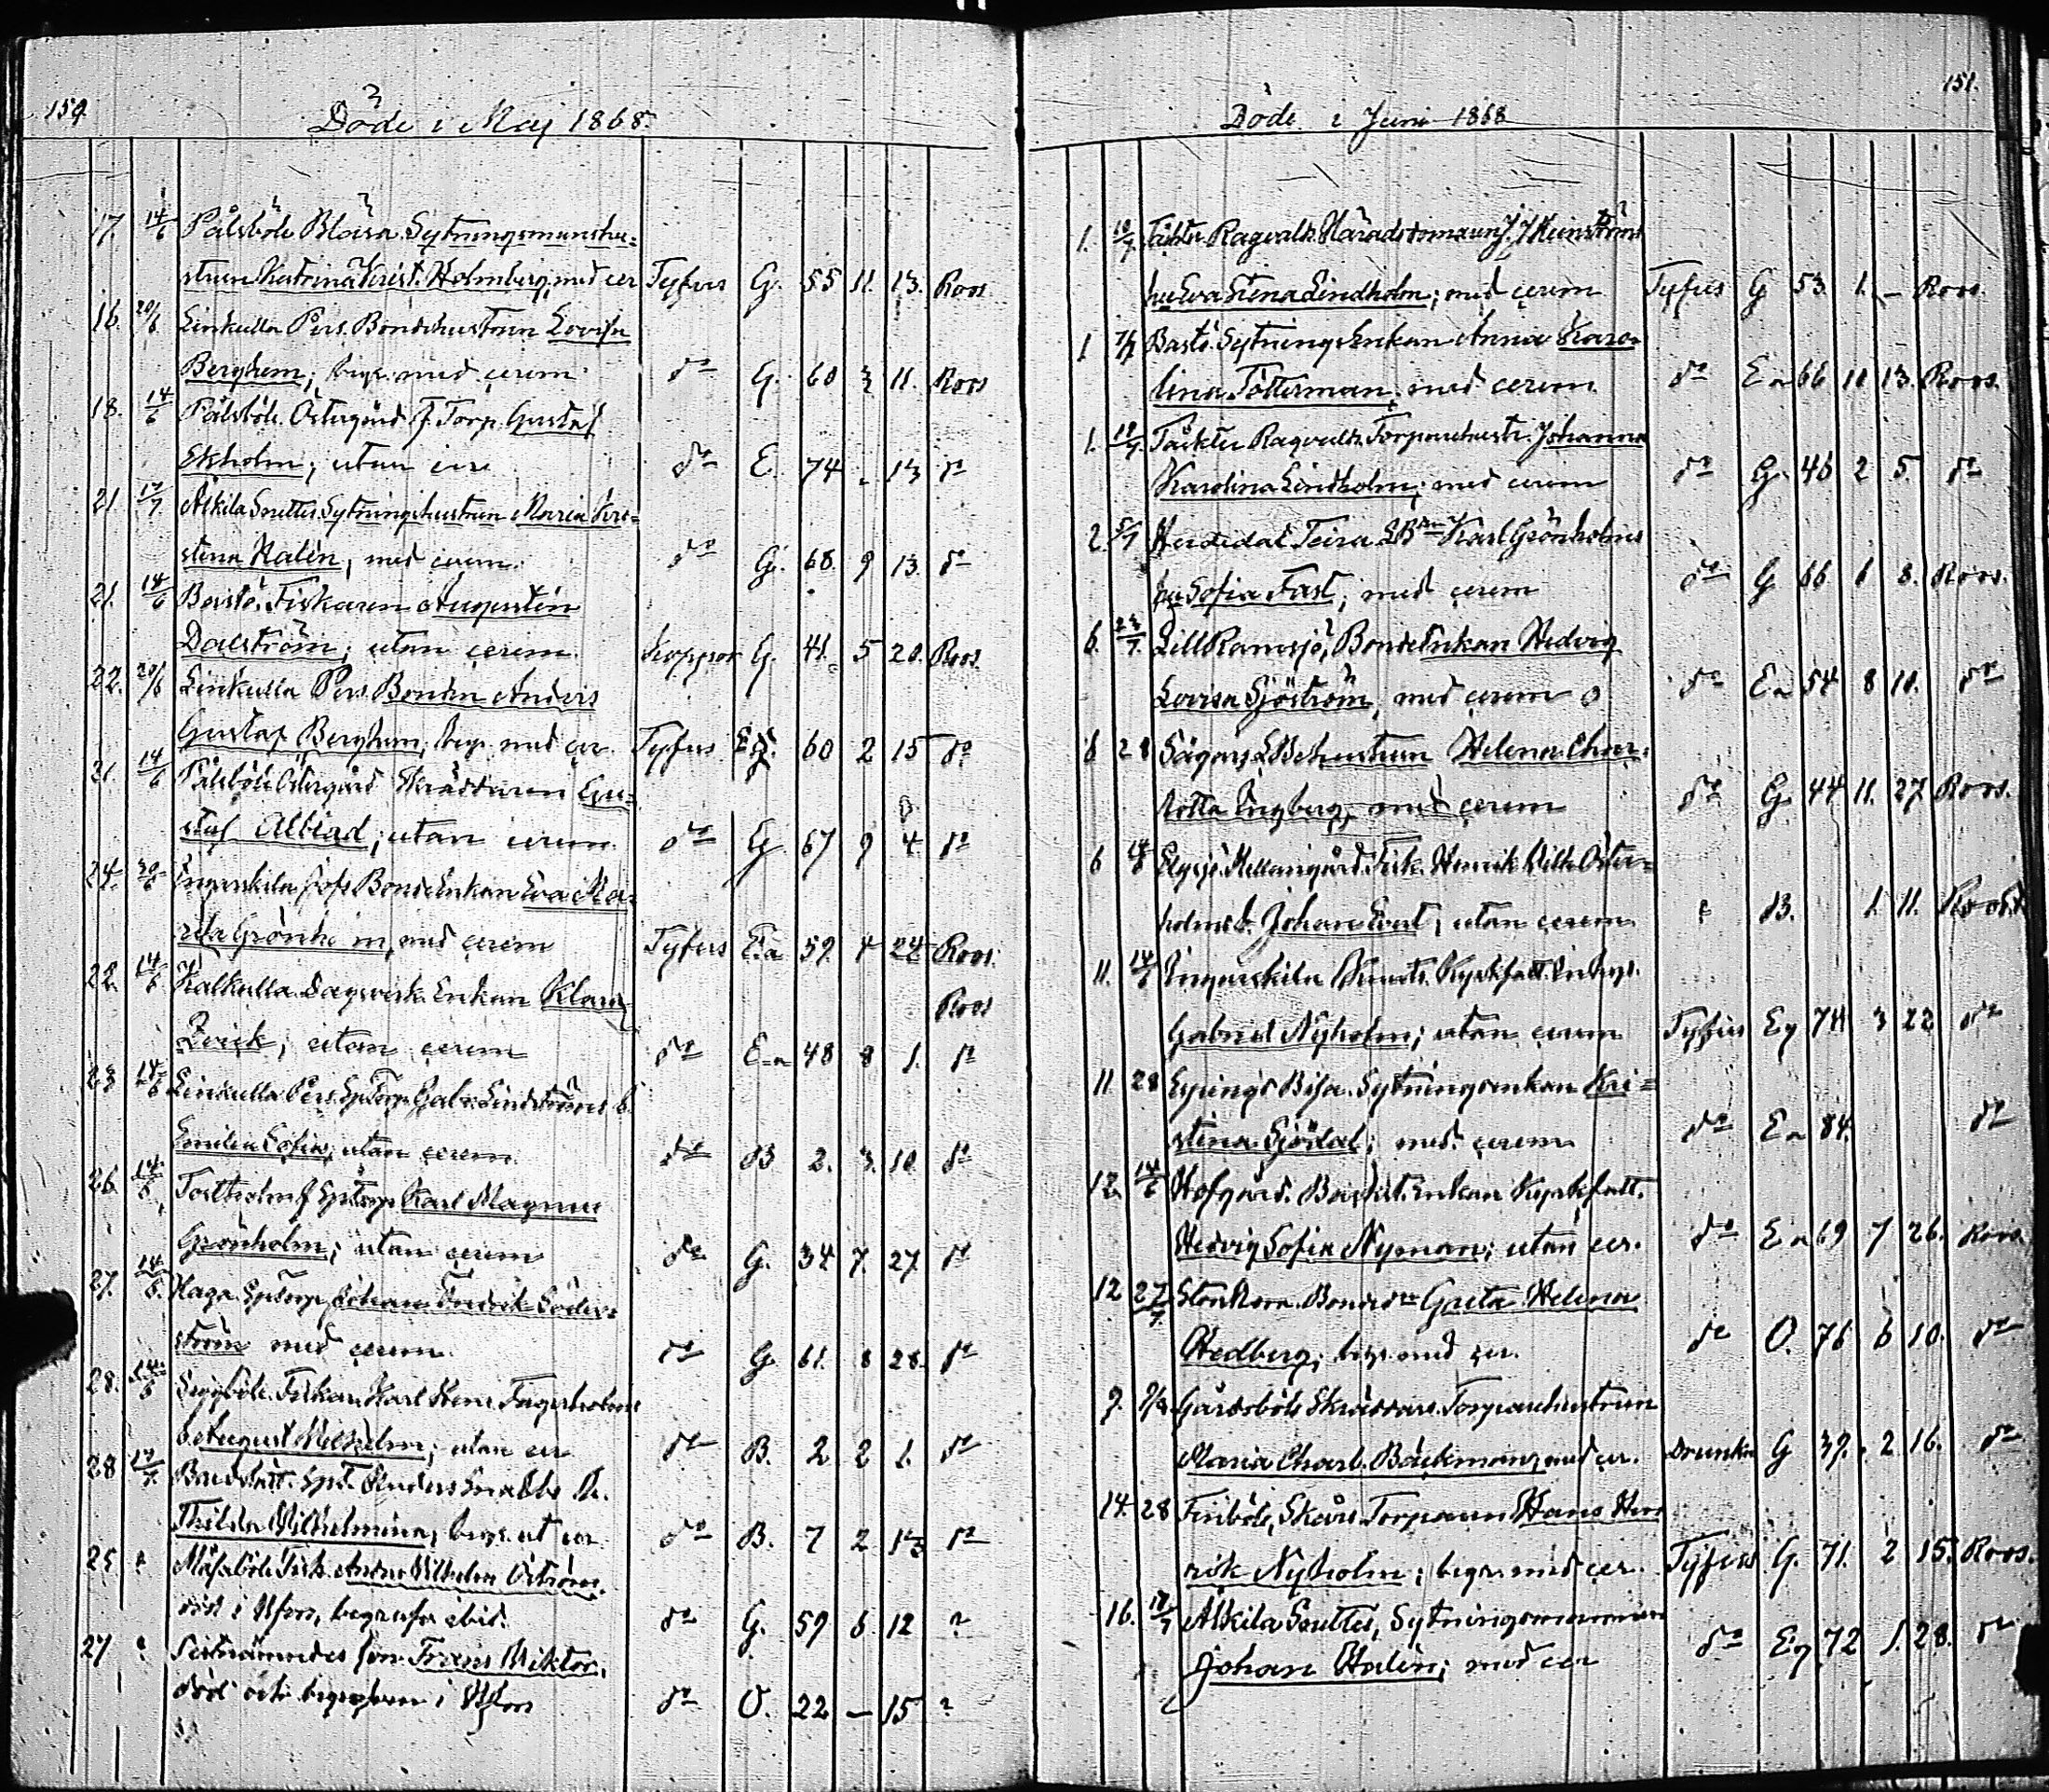 150.
Döde i Maj 1868.
17. 14/6 Pålsböle Blåsa Sytningsmanshu=
strun Katrina Krist. Holmberg, med cer Tyfus G. 55 11. 13. Roos
16. 20/6 Linkulla Pers. Bondehustrun Lovisa
Berghem; begr. med cerem dº G. 60 3 11. Roos
18. 14/6 Pålsböle Östergård f. Torp. Gustaf
Ekholm; utan cer dº E. 74 - 13 dº
21. 12/7 Alkila Snettes Sytningshustrun Maria Kri=
stina Halin, med cerem. dº G. 68. 9 13. dº
21. 14/6 Bastö. Fiskaren Augustin
Dalström; utan cerem. Koppor G. 41. 5 20. Roos.
22. 20/6 Linkulla Pers. Bonden Anders
Gustaf Berghem, begr. med cer. Tyfus Eg. 60 2 15 dº
21. 14/6 Pålsböle Östergård Skräddaren Gu=
staf Alblad; utan cerem. dº Eg. 67 9 4. dº
24. 20/6 Ingarskila Jofs Bondeenkan Eva Ma=
ria Grönholm, med cerem Tyfus E.a 59. 4 24 Roos.
22. 14/6 Kalkulla. Dagsverk. Enkan Klara Roos
Zvick; utan cerem dº E-a 48 8 1. dº
23 14/6 Linkulla Pers. Sp. Torp. Gabr. Lindströms b.
Emilia Sofia, utan cerem. dº B 2. 3. 10. dº
26. 14/6 Torlholm f Sp. Torp. Karl Magnus
Grönholm; utan cerem dº G. 34 7. 27. dº
27. 14/6. Haga. Sp. Torp. Johan Fredrik Söder=
ström med cerem. dº G. 61. 8 28. dº
28. 14/6 Seggböle. Fiskar. Karl Henr. Fagerholms
b. August Wilhelm; utan cer dº B. 2 2 1. dº
28 12/7. Spt. Anders
Thilda Wilhelmina, begr. ut cer dº B. 7 2 13 dº
25. Måsaböle Fisk. Anders Wilhelm Öström.
död i Hfors, begrafven ibid. dº G. 59 6. 12 ?
27 Sistnämndes son Frans Viktor,
död och begrafven i Hfors dº O. 22 — 15 ?
151.
Döde i Juni 1868
1. 10/7. Täkter Ragvalds Häradsdomaren J. J Henströms
hu Eva Stina Lindholm; med cerem Tyfus G 53. 1. — Roos.
1 7/7 Bastö. Sytningsenkan Anna Karo=
lina Tötterman; med cerem. dº E a 66 10 13. Roos.
1. 19/7. Täkter Ragvalds Torparehustr. Johanna
Karolina Lindholm; med cerem dº G. 46 2 5. dº
2. 5/7 Heidedal Teira Karl Grönholms
hu Sofia Fast; med cerem dº G 66 6 8. Roos.
6. 23/7. Lill Ramsjö, Bondeenkan Hedvig
Lovisa Sjöström, med cerem dº E a 54 8 10. dº
6 28 Sågars LBehustrun Helena Char=
lotta Engberg, med cerem dº G. 44 11. 27 Roos.
6 14/6 Elgsjö Mellangård. Fisk. Henrik Wilh. Öster=
holms b. Johan Evert; utan cerem. B. 1. 11.
11. 14/6 Ingarskila Knuts. Kyrkfatt. Inhys.
Gabriel Nyholm; utan cerem Tyfus Eg 74 3 22 dº
11. 28 Evings Bisa. Sytningsenkan Kri=
stina Sjödal; med cerem dº E a 84. dº
12. 14/6 Hofgård. Backst. Enkan Kyrkfatt.
Hedvig Sofia Nyman; utan cer. dº E a 69 7 26. Roos.
12 27/7 Stor Ramsjö. Bonded. Greta Helena
Hedberg; begr. med cer. dº O. 76 6 10. dº
9. 2/8 Gårdsböle Skräddars. Torparehustrun
Maria Charl. Bäckman, med cer. Drunkn G 39. 2 16. dº
14. 28 Finböle, Skårs. Torparen Hans Hen
rik Nyholm; begr. med cer. Tyfus G. 71. 2 15. Roos.
16. 12/7 Alkila Snettes, Sytningsmannen
Johan Halin; med cer dº Eg 72 1. 28. dº